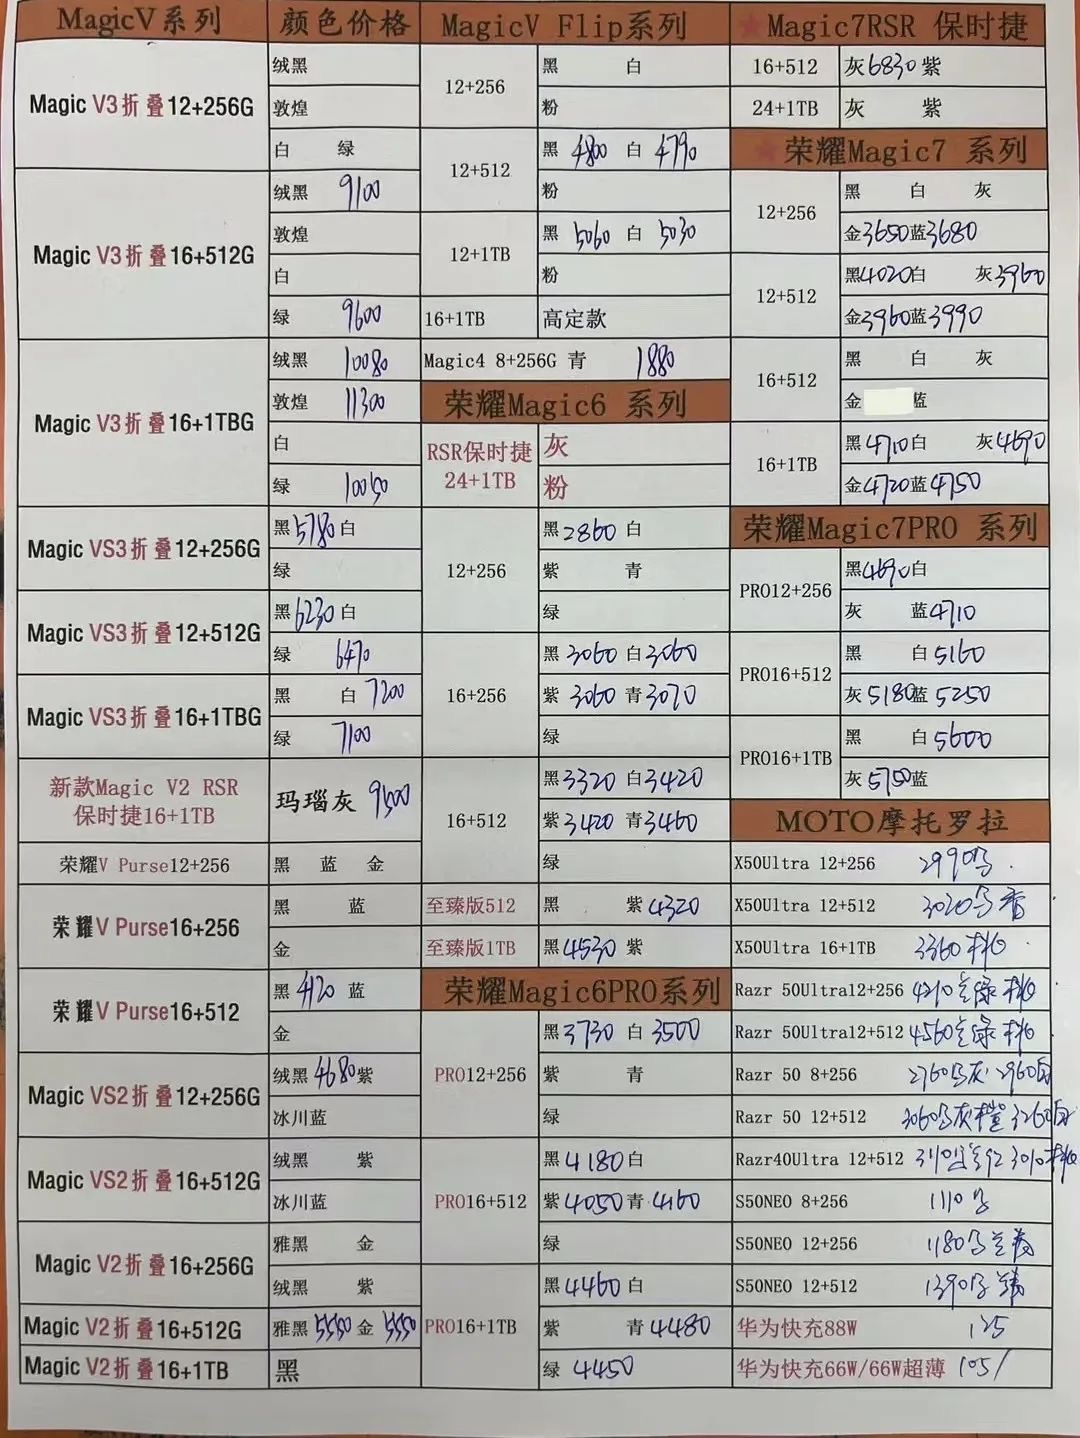 MagicV系列 颜色价格
Magic V3折叠12+256G
绒黑
敦煌
白 绿
Magic V3折叠16+512G
绒黑 9100
敦煌
白
绿 9600
Magic V3折叠16+1TBG
绒黑 10080
敦煌 11300
白
绿 10050
Magic VS3折叠12+256G
黑5780白
绿
Magic VS3折叠12+512G
黑6230白
绿 6470
Magic VS3折叠16+1TBG
黑 白7200
绿 7100
新款Magic V2 RSR
保时捷16+1TB
玛瑙灰 9500
荣耀V Purse12+256 黑 蓝 金
荣耀V Purse16+256
黑 蓝
金
荣耀V Purse16+512
黑4120蓝
金
Magic VS2折叠12+256G
绒黑4680紫
冰川蓝
Magic VS2折叠16+512G
绒黑 紫
冰川蓝
Magic V2折叠16+256G
雅黑 金
绒黑 紫
Magic V2折叠16+512G 雅黑5550金5550
Magic V2折叠16+1TB 黑
MagicV Flip系列
12+256
黑 白
粉
12+512
黑 4800 白 4790
粉
12+1TB
黑 5060 白 5030
粉
16+1TB 高定款
Magic4 8+256G 青 1880
荣耀Magic6 系列
RSR保时捷
24+1TB
灰
粉
12+256
黑2860白
紫 青
绿
16+256
黑3060白3060
紫3060青3070
绿
16+512
黑3320白3420
紫3420青3460
绿
至臻版512 黑 紫4320
至臻版1TB 黑4530紫
荣耀Magic6PRO系列
PRO12+256
黑3730白3500
紫 青
绿
PRO16+512
黑4180白
紫4050青4160
绿
PRO16+1TB
黑4460白
紫 青4480
绿 4450
★Magic7RSR 保时捷
16+512 灰6830紫
24+1TB 灰 紫
★荣耀Magic7 系列
12+256
黑 白 灰
金3650蓝3680
12+512
黑4020白 灰3960
金3960蓝3990
16+512
黑 白 灰
金 蓝
16+1TB
黑4710白 灰4690
金4720蓝4750
荣耀Magic7PRO 系列
PRO12+256
黑4690白
灰 蓝4710
PRO16+512
黑 白5160
灰5180蓝5250
PRO16+1TB
黑 白5600
灰5750蓝
MOTO摩托罗拉
X50Ultra 12+256 2990
X50Ultra 12+512 3020
X50Ultra 16+1TB 3360桃
Razr 50Ultra12+256 4210兰绿桃
Razr 50Ultra12+512 4560兰绿桃
Razr 50 8+256 2760 灰 2960白
Razr 50 12+512 3060 灰橙 3260白
Razr40Ultra 12+512
S50NEO 8+256 1110
S50NEO 12+256 1180
S50NEO 12+512 1390
华为快充88W 125
华为快充66W/66W超薄 105/